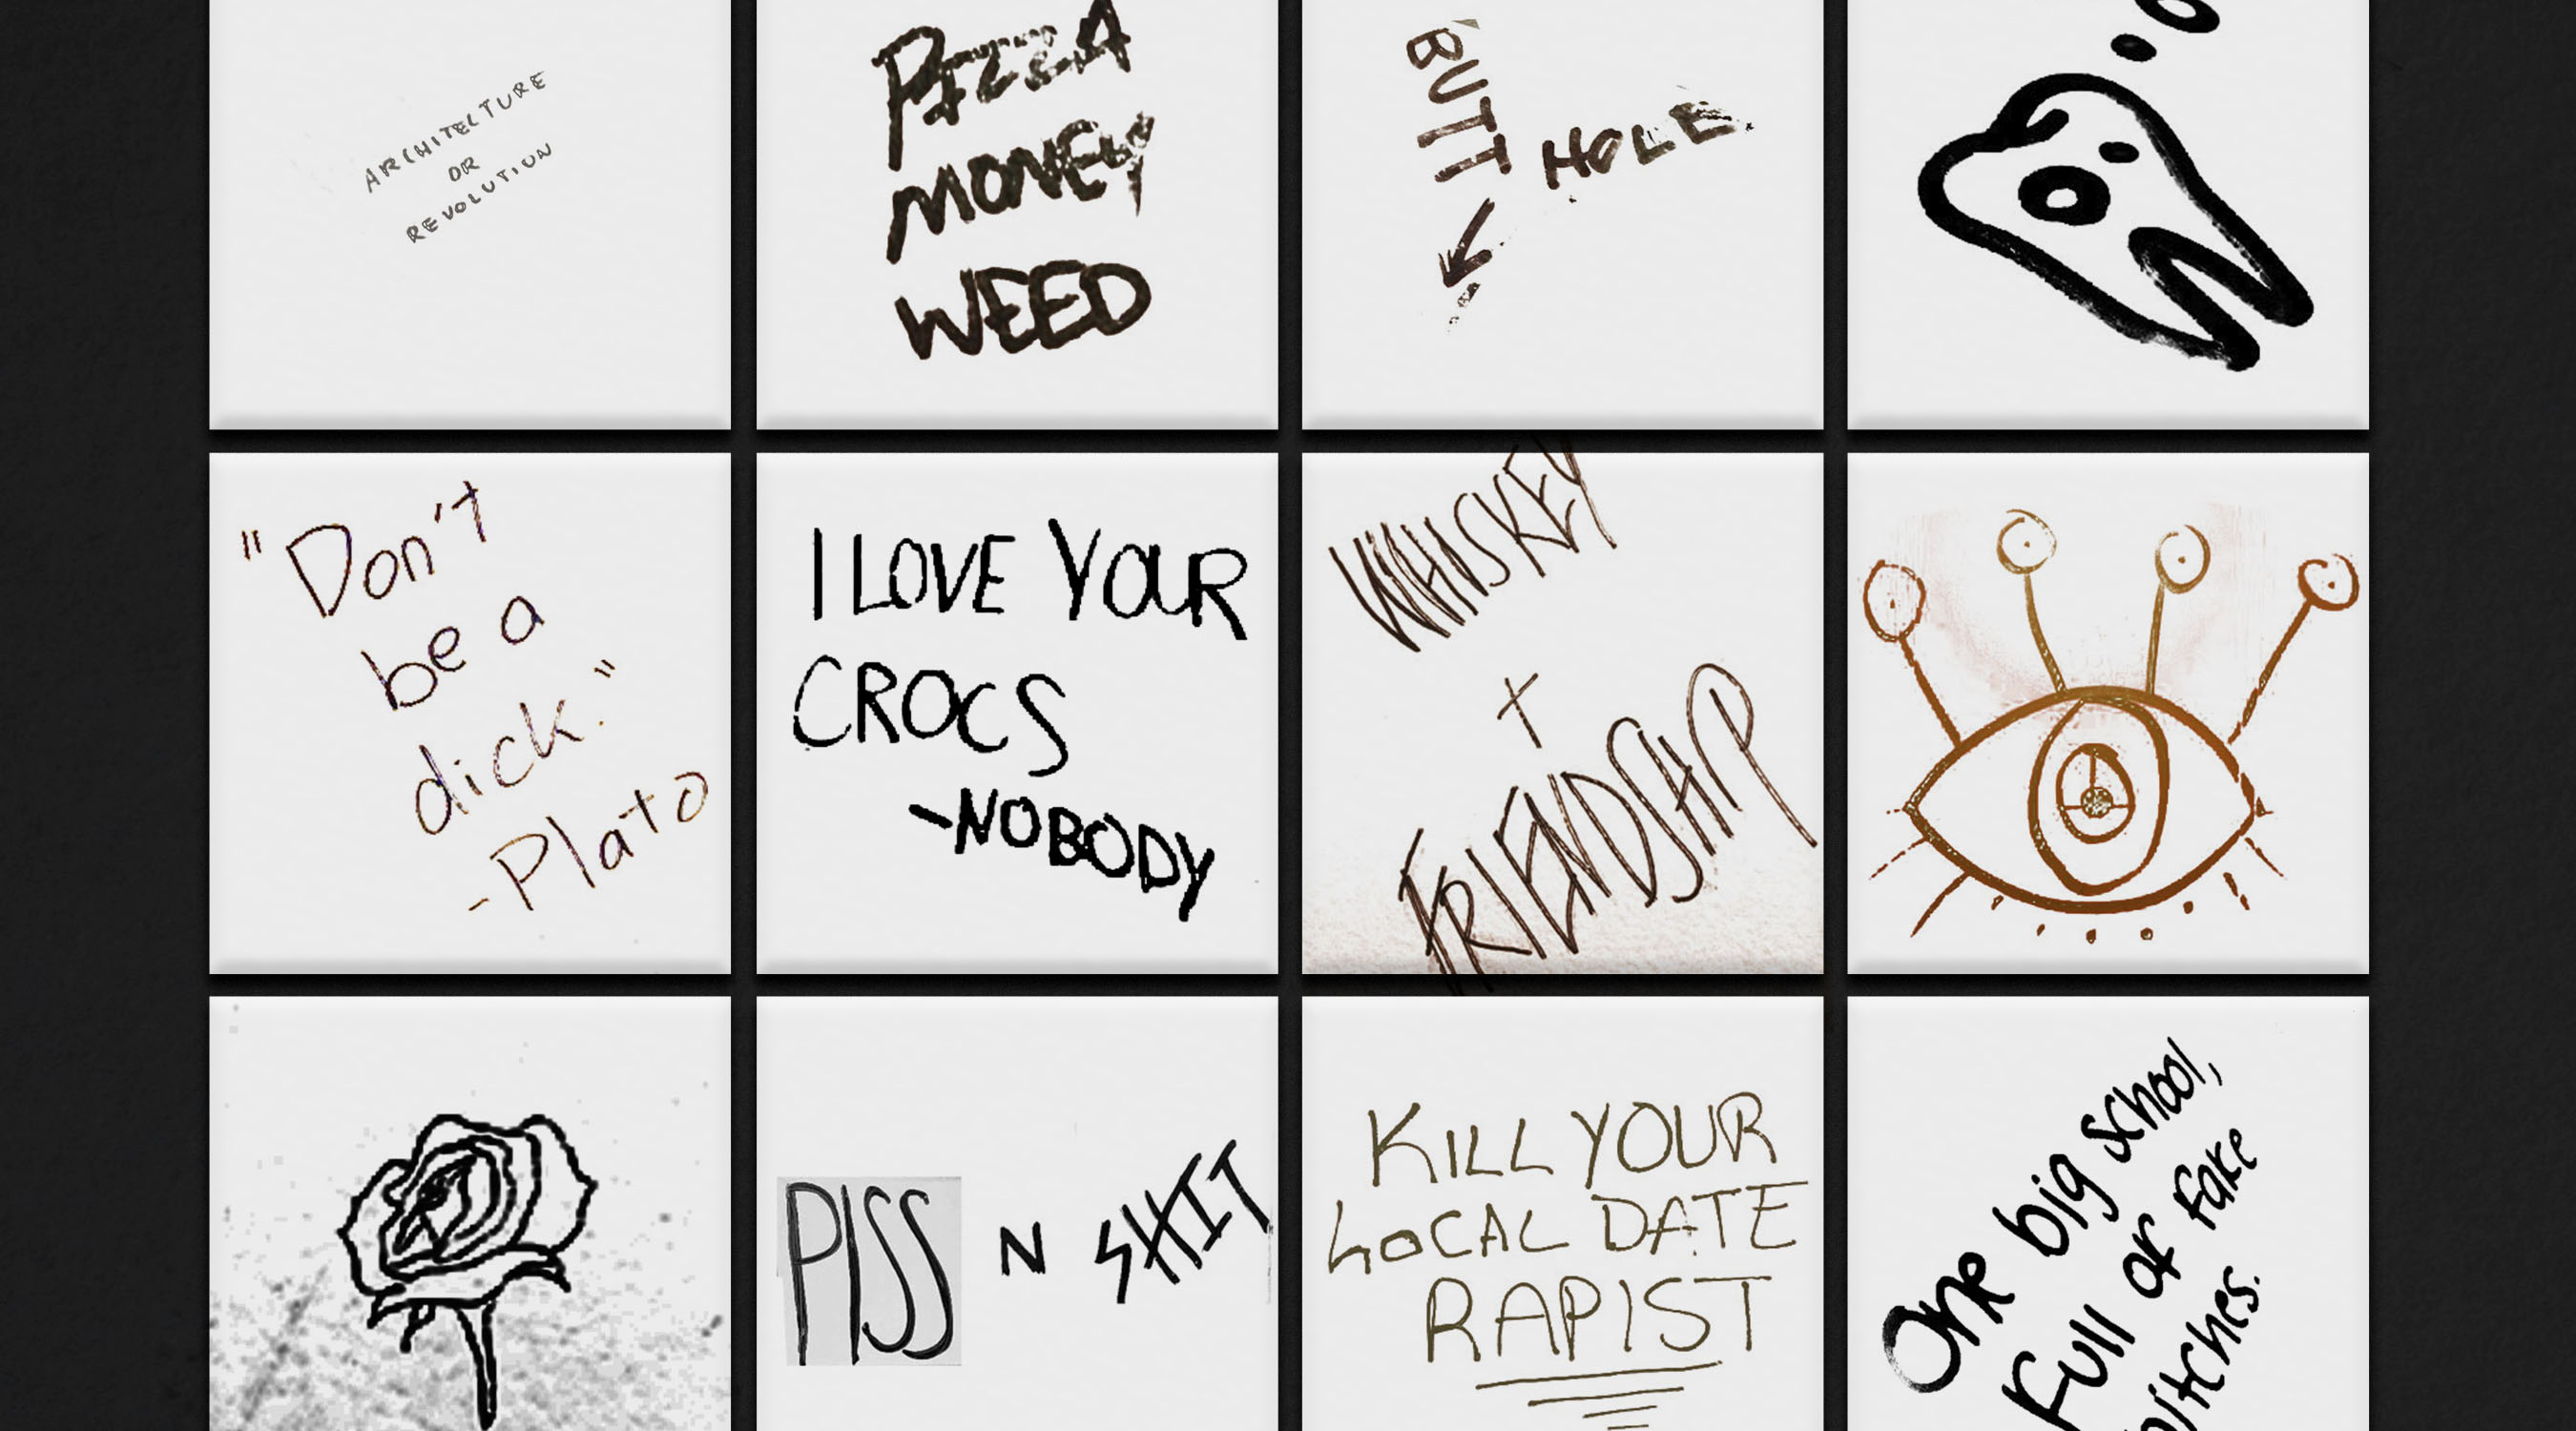 ARCHITECTURE
OR
REVOLUTION
PIZZA
MONEY
WEED
BUTT
HOLE
"Don't
be a
dick."
-Plato
I LOVE YOUR
CROCS
-NOBODY
WHISKEY
+
FRIENDSHIP
PISS N SHIT
KILL YOUR
LOCAL DATE
RAPIST
One big school,
Full of fake
bitches.